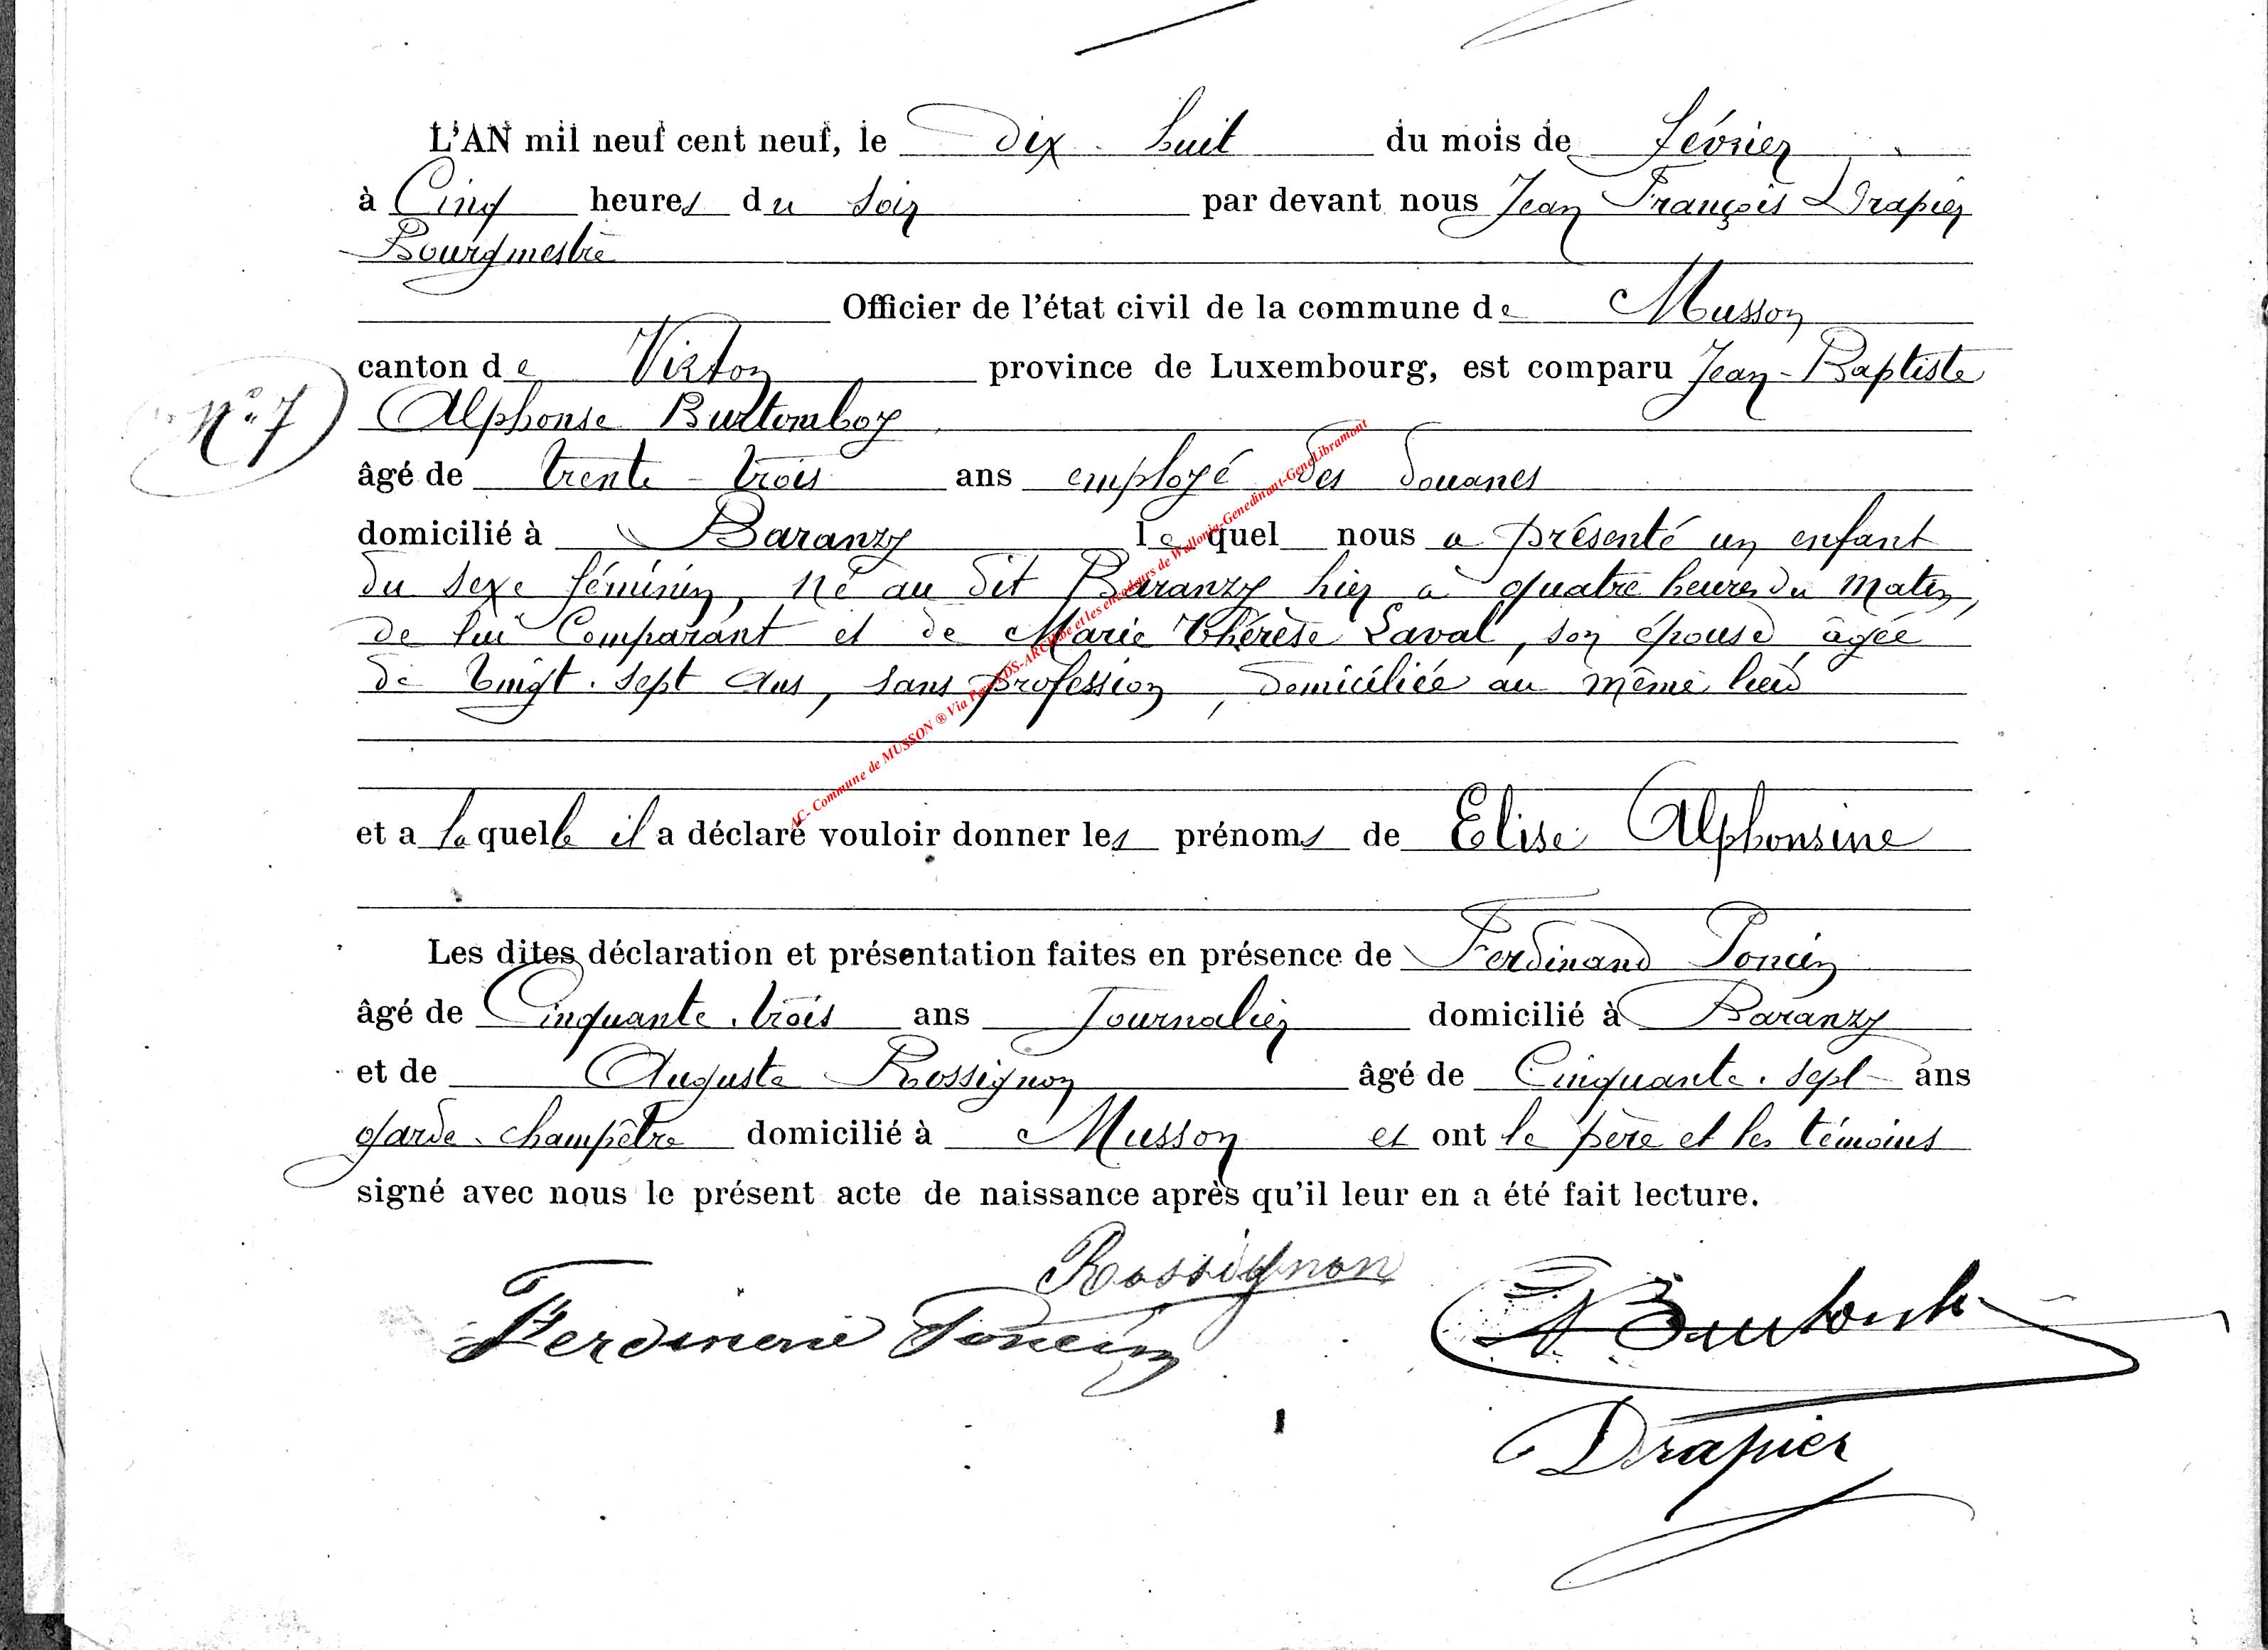 L'AN mil neuf cent neuf, le dix-huit du mois de février
à Cinq heures du soir par devant nous Jean François Drapier
Bourgmestre
Officier de l'état civil de la commune de Musson
canton de Virton province de Luxembourg, est comparu Jean-Baptiste
N° 7
Alphonse Burtomboy
âgé de trente-trois ans employé des douanes
domicilié à Baranzy lequel nous a présenté un enfant
du sexe féminin, né au dit Baranzy hier à quatre heures du matin,
de lui Comparant et de Marie Thérèse Laval, son épouse, âgée
de vingt-sept ans, sans profession, domiciliée au même lieu
AC- Commune de MUSSON ® Via Pers ADS-ARCH.be et les encodeurs de Wallonia-Genedinant-GeneLibramont
et a laquelle il a déclaré vouloir donner les prénoms de Elise Alphonsine
Les dites déclaration et présentation faites en présence de Ferdinand Poncin
âgé de Cinquante-trois ans Journalier domicilié à Baranzy
et de Auguste Rossignon âgé de Cinquante-sept ans
garde-champêtre domicilié à Musson et ont le père et les témoins
signé avec nous le présent acte de naissance après qu'il leur en a été fait lecture.
Rossignon
Poncin
Drapier